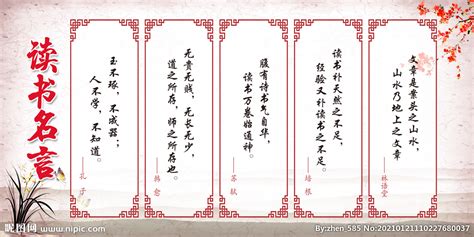 读书名言
玉不琢，不成器；
人不学，不知道。
——孔子
无贵无贱，无长无少，
道之所存，师之所存也
——韩愈
腹有诗书气自华，
读书万卷始通神。
——苏轼
读书补天然之不足，
经验又补读书之不足。
——培根
文章是案头之山水，
山水乃地上之文章
——林语堂
昵图网 www.nipic.com
By:zhen 585 No:20210121110227680037